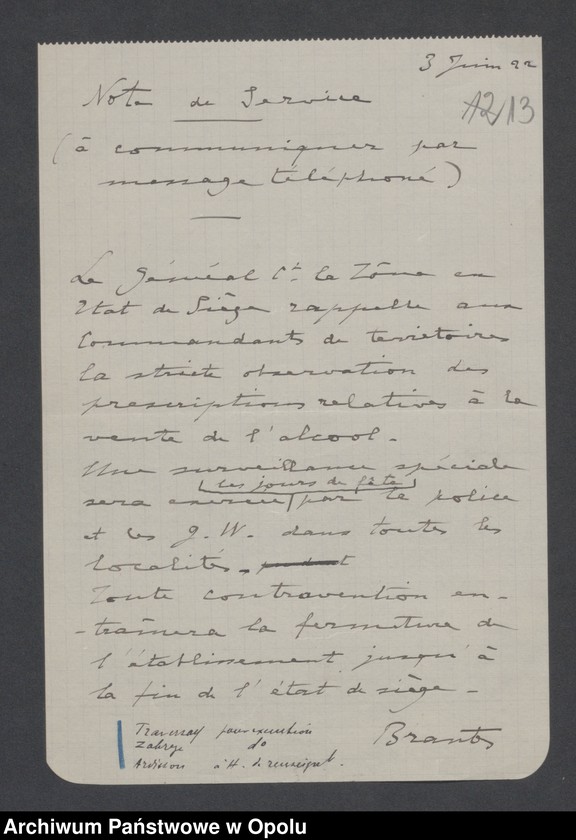 3 Juin 22
12/13
Note de Service
(à communiquer par
message téléphoné)
Le Général Ct la Zône en
Etat de Siège rappelle aux
Commandants de territoires
la stricte observation des
prescriptions relatives à la
vente de l'alcool.
Une surveillance spéciale
les jours de fête
sera exercée par la police
et les G.W. dans toutes les
localités.
Toute contravention en-
-traînera la fermeture de
l'établissement jusqu'à
la fin de l'état de siège.
pour exécution
Zabrze do
à t. de renseignt.
Brantes
Archiwum Państwowe w Opolu